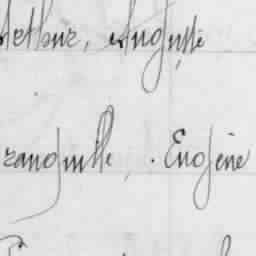 Arthur, Auguste
ranquille, Eugène